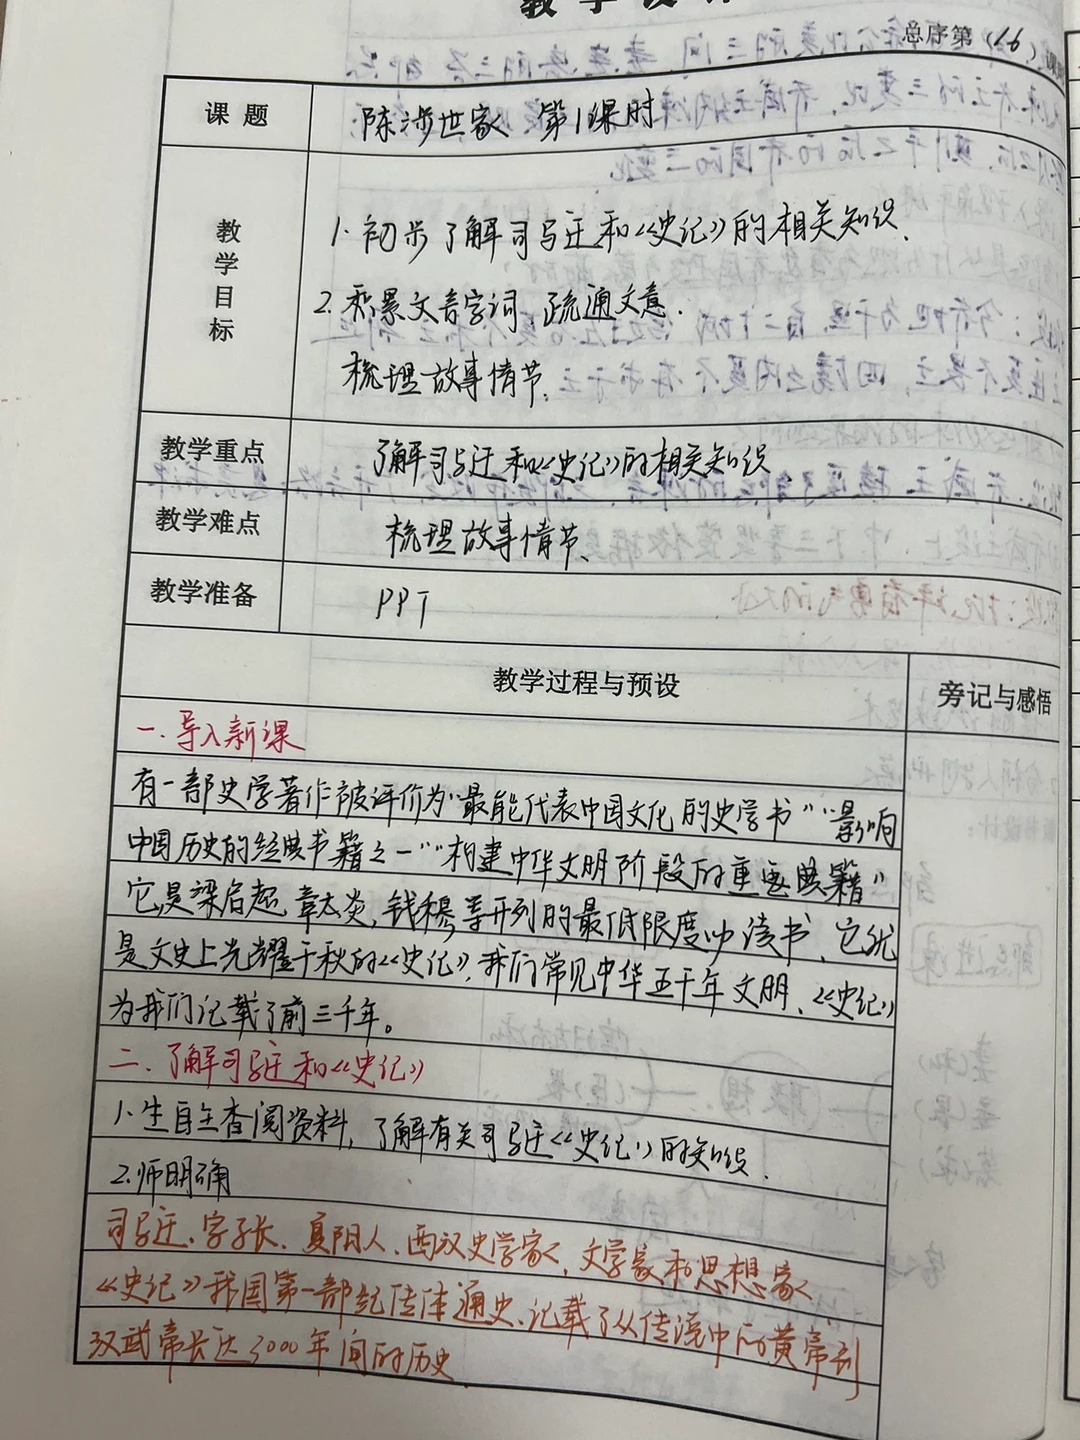 教学设计
总序第（16）课时
课题 陈涉世家 第1课时
教学目标
1.初步了解司马迁和《史记》的相关知识.
2.积累文言字词，疏通文意.
梳理故事情节.
教学重点 了解司马迁和《史记》的相关知识
教学难点 梳理故事情节.
教学准备 PPT
教学过程与预设 旁记与感悟
一.导入新课
有一部史学著作被评价为“最能代表中国文化的史学书”“影响
中国历史的经典书籍之一”“构建中华文明阶段的重要典籍”
它是梁启超 章太炎,钱穆等开列的最低限度必读书、它就
是文史上光耀千秋的《史记》.我们常见中华五千年文明、《史记》
为我们记载了前三千年。
二.了解司马迁和《史记》
1.生自主查阅资料，了解有关司马迁《史记》的知识.
2.师明确
司马迁、字子长、夏阳人、西汉史学家，文学家和思想家
《史记》我国第一部纪传体通史、记载了从传说中的黄帝到
汉武帝长达3000年间的历史